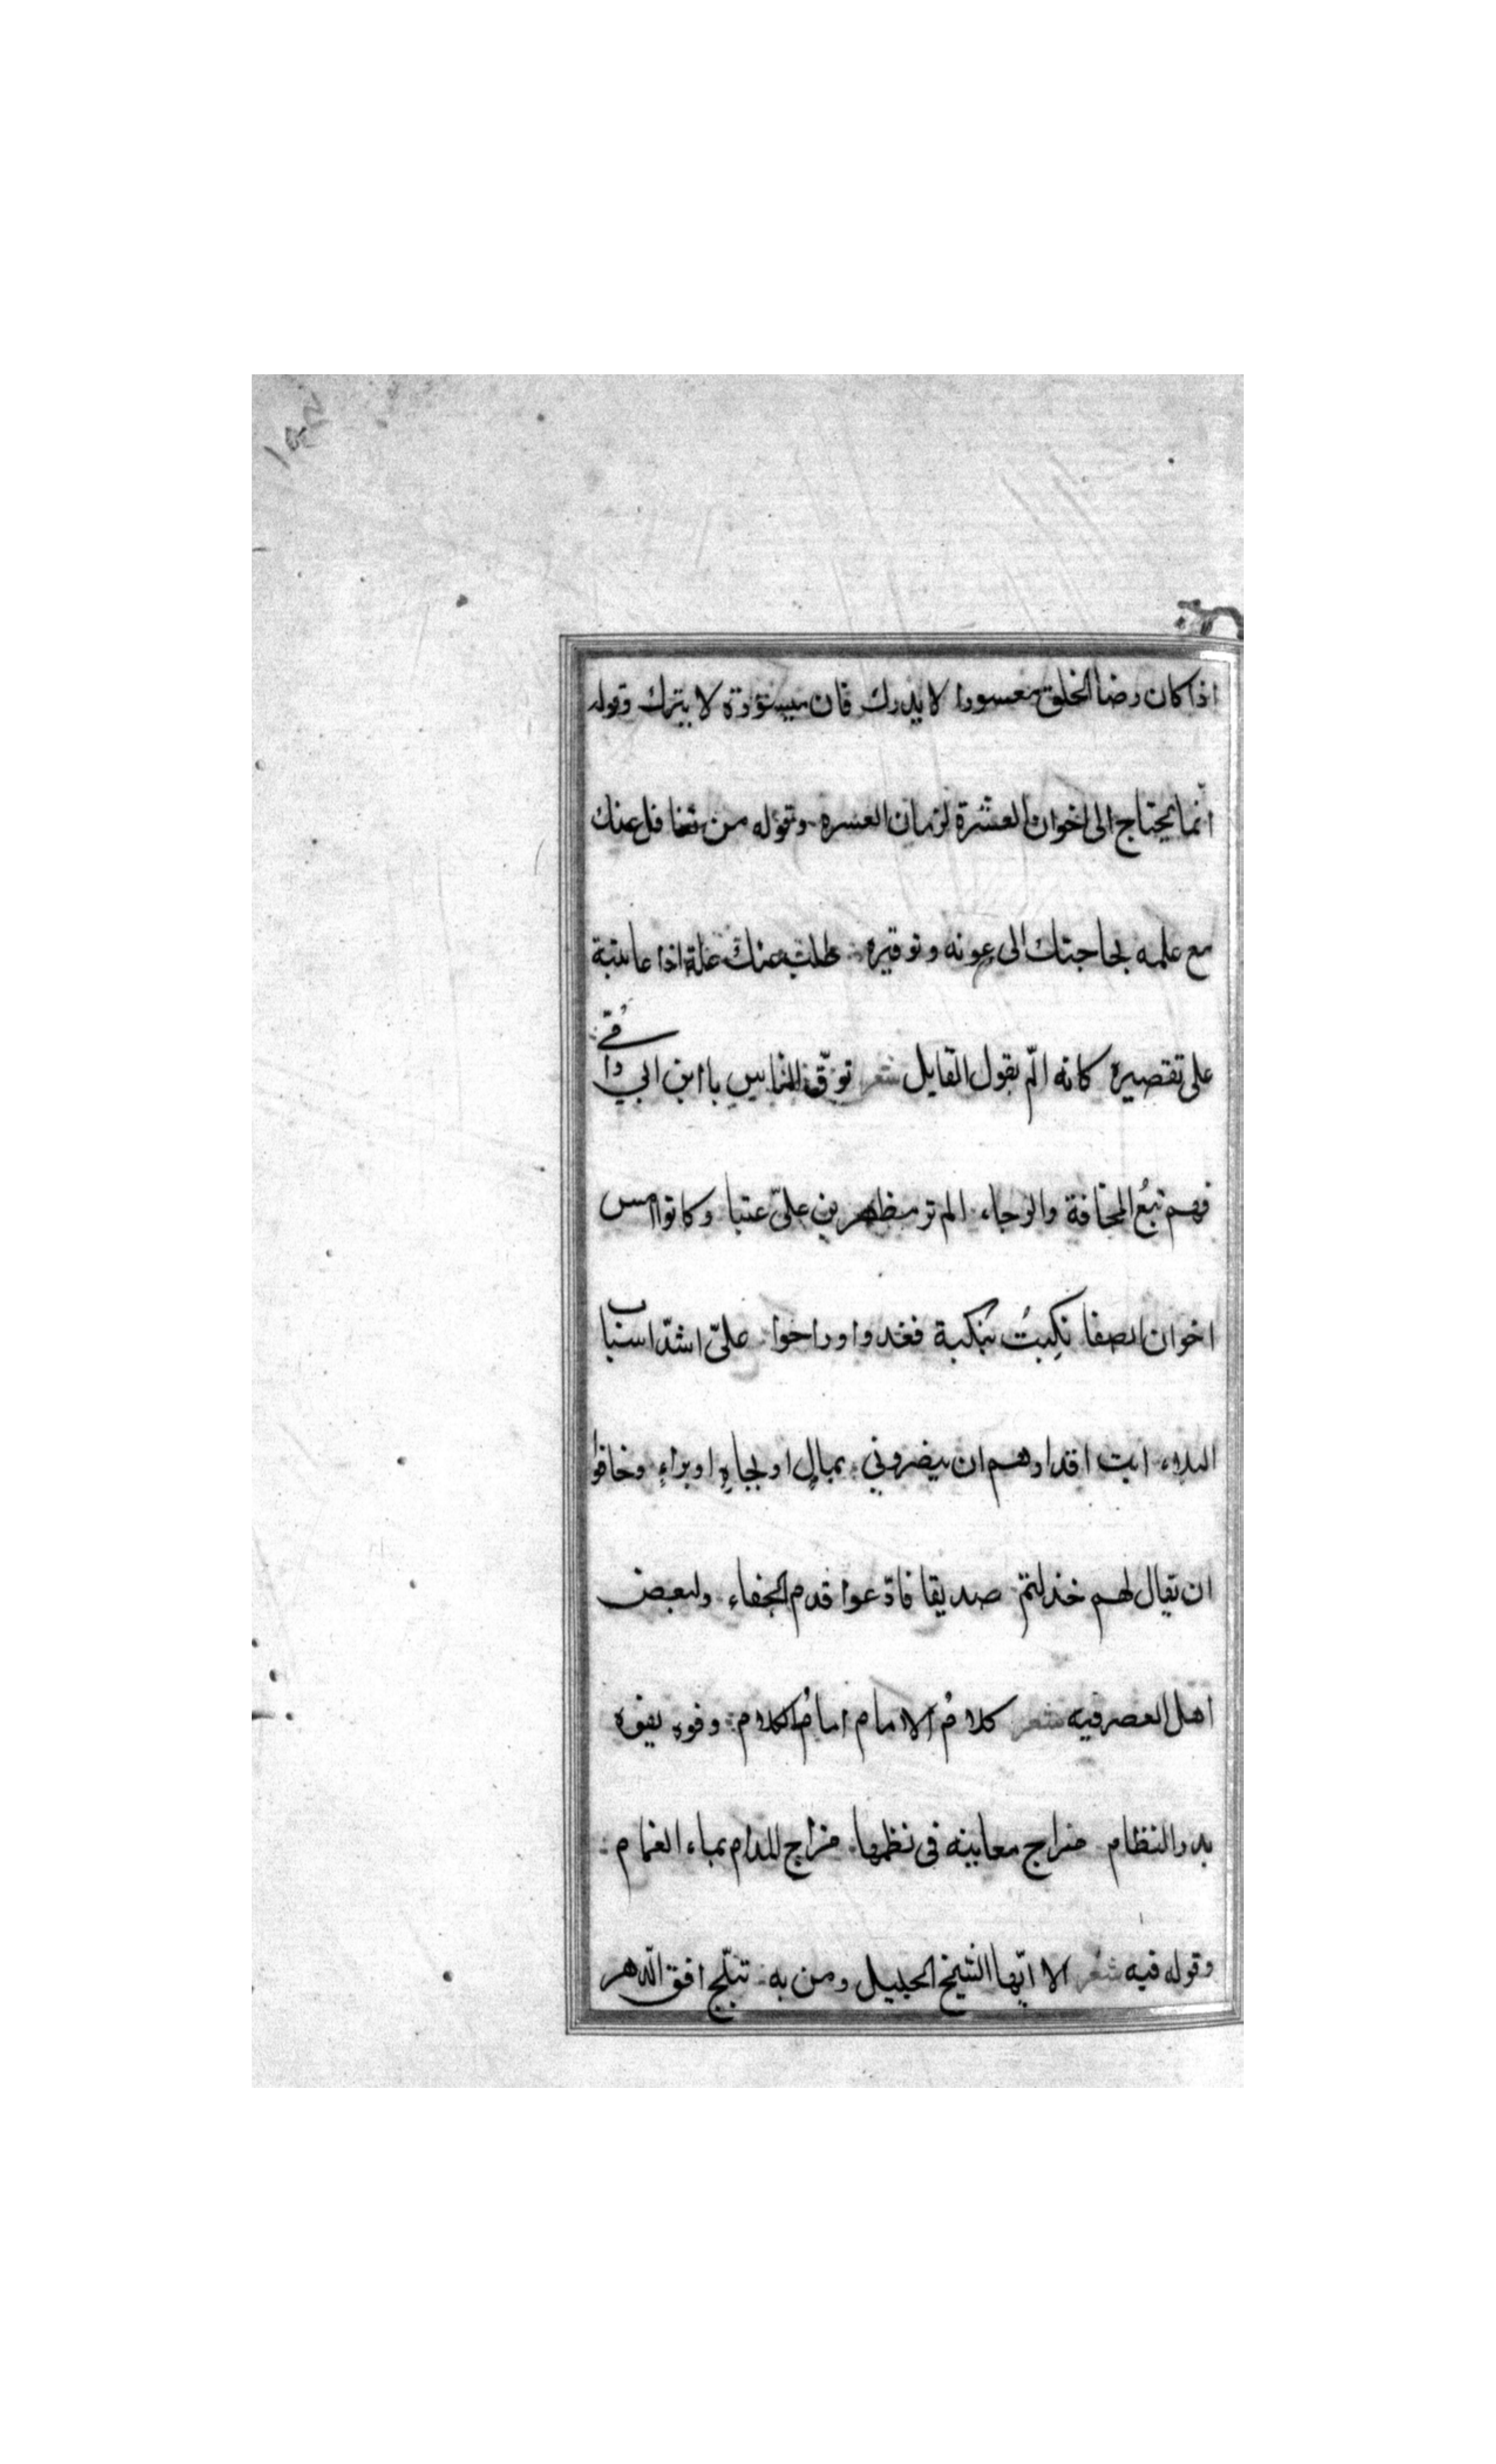 اذا كان رضا الخلق معسورا لا يدرك فان ميسوره لا يترك وقوله
انّما يحتاج الى اخوان العشرة لزمان العسره وقوله من تغافل عنك
مع علمه بحاجتك الى عونه وتوقيره طلب منك علة اذا عاتبته
على تقصيره كانه الم بقول القايل شعر توقّ الناس يا ابن ابي وا
فهم تبعُ المخافة والرجاء الم تر مظهرين علىّ عتبا وكانوا امس
اخوان الصفا نكِبتُ بنكبة فغدوا وراحوا علىّ اشدّ اسباب
البلاء ابت اقدارهم ان ينصروني بمالٍ او بجاهٍ او براءٍ وخافوا
ان يقال لهم خذلتم صديقا فادّعوا قدم الجفاء ولبعض
اهل العصر فيه شعر كلامُ الامام امامُ الكلام وفوه يفوه
بدر النظام مزاج معانيه فى نظمها مزاج المدام بماء الغمام
وقوله فيه شعر الا ايّها الشيخ الجليل ومن به تبلّج افق الدّهر